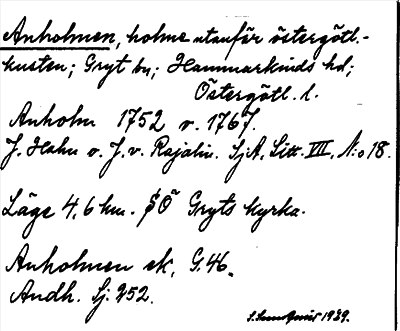 Anholmen, holme utanför östergötl.-
kusten; Gryt sn; Hammarkinds hd;
Östergötl. l.
Anholm 1752 v. 1767.
J. Hahn o. J. v. Rajalin. SjA, Litt. VIII, N:o 18.
Läge 4,6 km. SÖ Gryts kyrka.
Anholmen ek. G. 46.
Andh. Sj: 252.
1939.